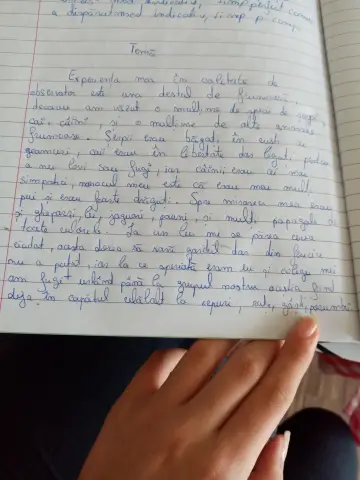 a dispărut mod indicativ, timp p. comp.
Temă
Experiența mea în calitate de
observator este una destul de frumoasă,
deoarece am văzut o mulțime de specii de șerpi,
cai, câini, și o mulțime de alte animale
frumoase. Șerpii erau băgați în cuști cu
geamuri, caii erau în libertate dar legați, pentru
a nu lovi sau fugi, iar câinii erau cei mai
simpatici, norocul meu este că erau mai mult
pui și erau foarte drăguți. Spre mirarea mea erau
și gheparzi, lei, jaguari, pauni, și mulți papagali de
toate culorile. La un leu mi se părea ceva
ciudat, acesta dorea să sară gardul dar din fericire
nu a putut, iar la ce speriată eram eu și colegii mei
am fugit urlând până la grupul nostru acesta fiind
deja în capătul celălalt la iepuri, rațe, gâște, porumbei